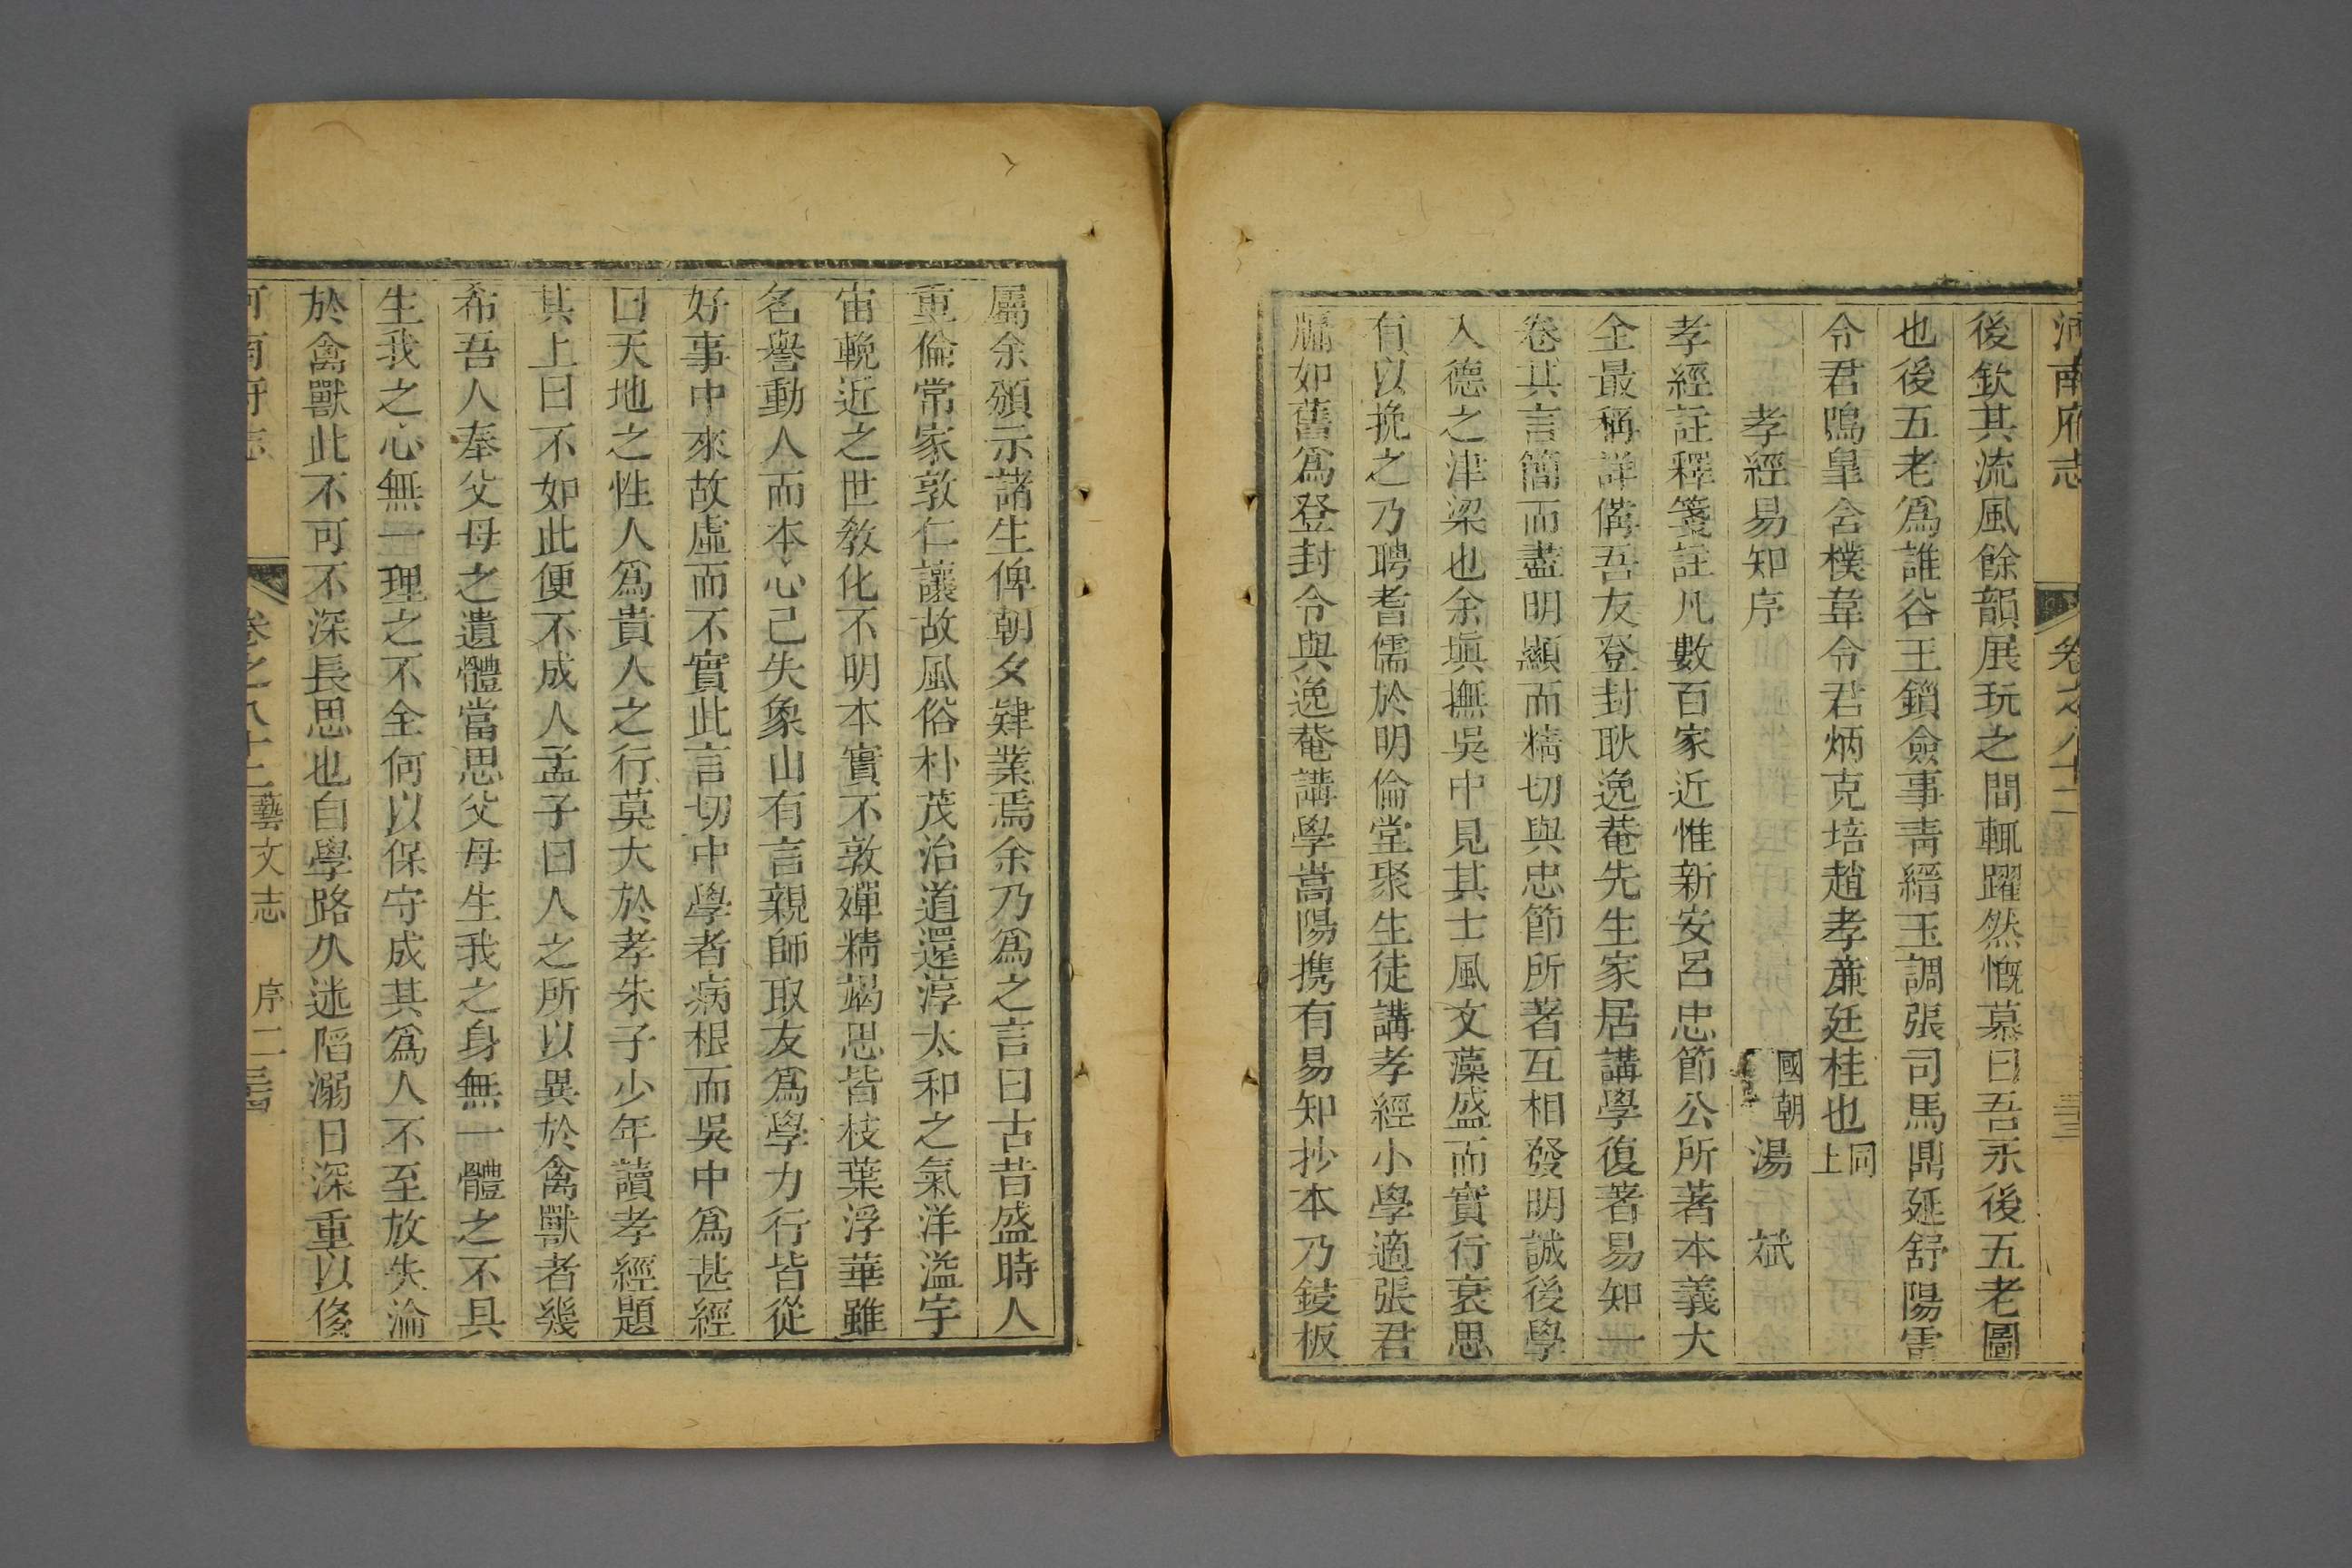 河南府志 卷之八十二
後欽其流風餘韻展玩之間輒躍然慨慕曰吾永後五老圖
也後五老爲誰谷王鎖僉事靑縉玉調張司馬鼎延舒陽雷
令君鳴皐含樸韋令君炳克培趙孝亷廷桂也同上
孝經易知序 國朝 湯 斌
孝經註釋箋註凡數百家近惟新安呂忠節公所著本義大
全最稱詳備吾友登封耿逸菴先生家居講學復著易知一
卷其言簡而盡明顯而精切與忠節所著互相發明誠後學
入德之津梁也余塡撫吳中見其士風文藻盛而實行衰思
有以挽之乃聘耆儒於明倫堂聚生徒講孝經小學適張君
牖如舊爲登封令與逸菴講學嵩陽携有易知抄本乃鋟板
屬余頒示諸生俾朝夕肄業焉余乃爲之言曰古昔盛時人
重倫常家敦仁讓故風俗朴茂治道還淳太和之氣洋溢宇
宙輓近之世敎化不明本實不敦殫精竭思皆枝葉浮華雖
名譽動人而本心已失象山有言親師取友爲學力行皆從
好事中來故虛而不實此言切中學者病根而吳中爲甚經
曰天地之性人爲貴人之行莫大於孝朱子少年讀孝經題
其上曰不如此便不成人孟子曰人之所以異於禽獸者幾
希吾人奉父母之遺體當思父母生我之身無一體之不具
生我之心無一理之不全何以保守成其爲人不至放失淪
於禽獸此不可不深長思也自學路久迷陷溺日深重以俢
河南府志 卷之八十二 藝文志 序二